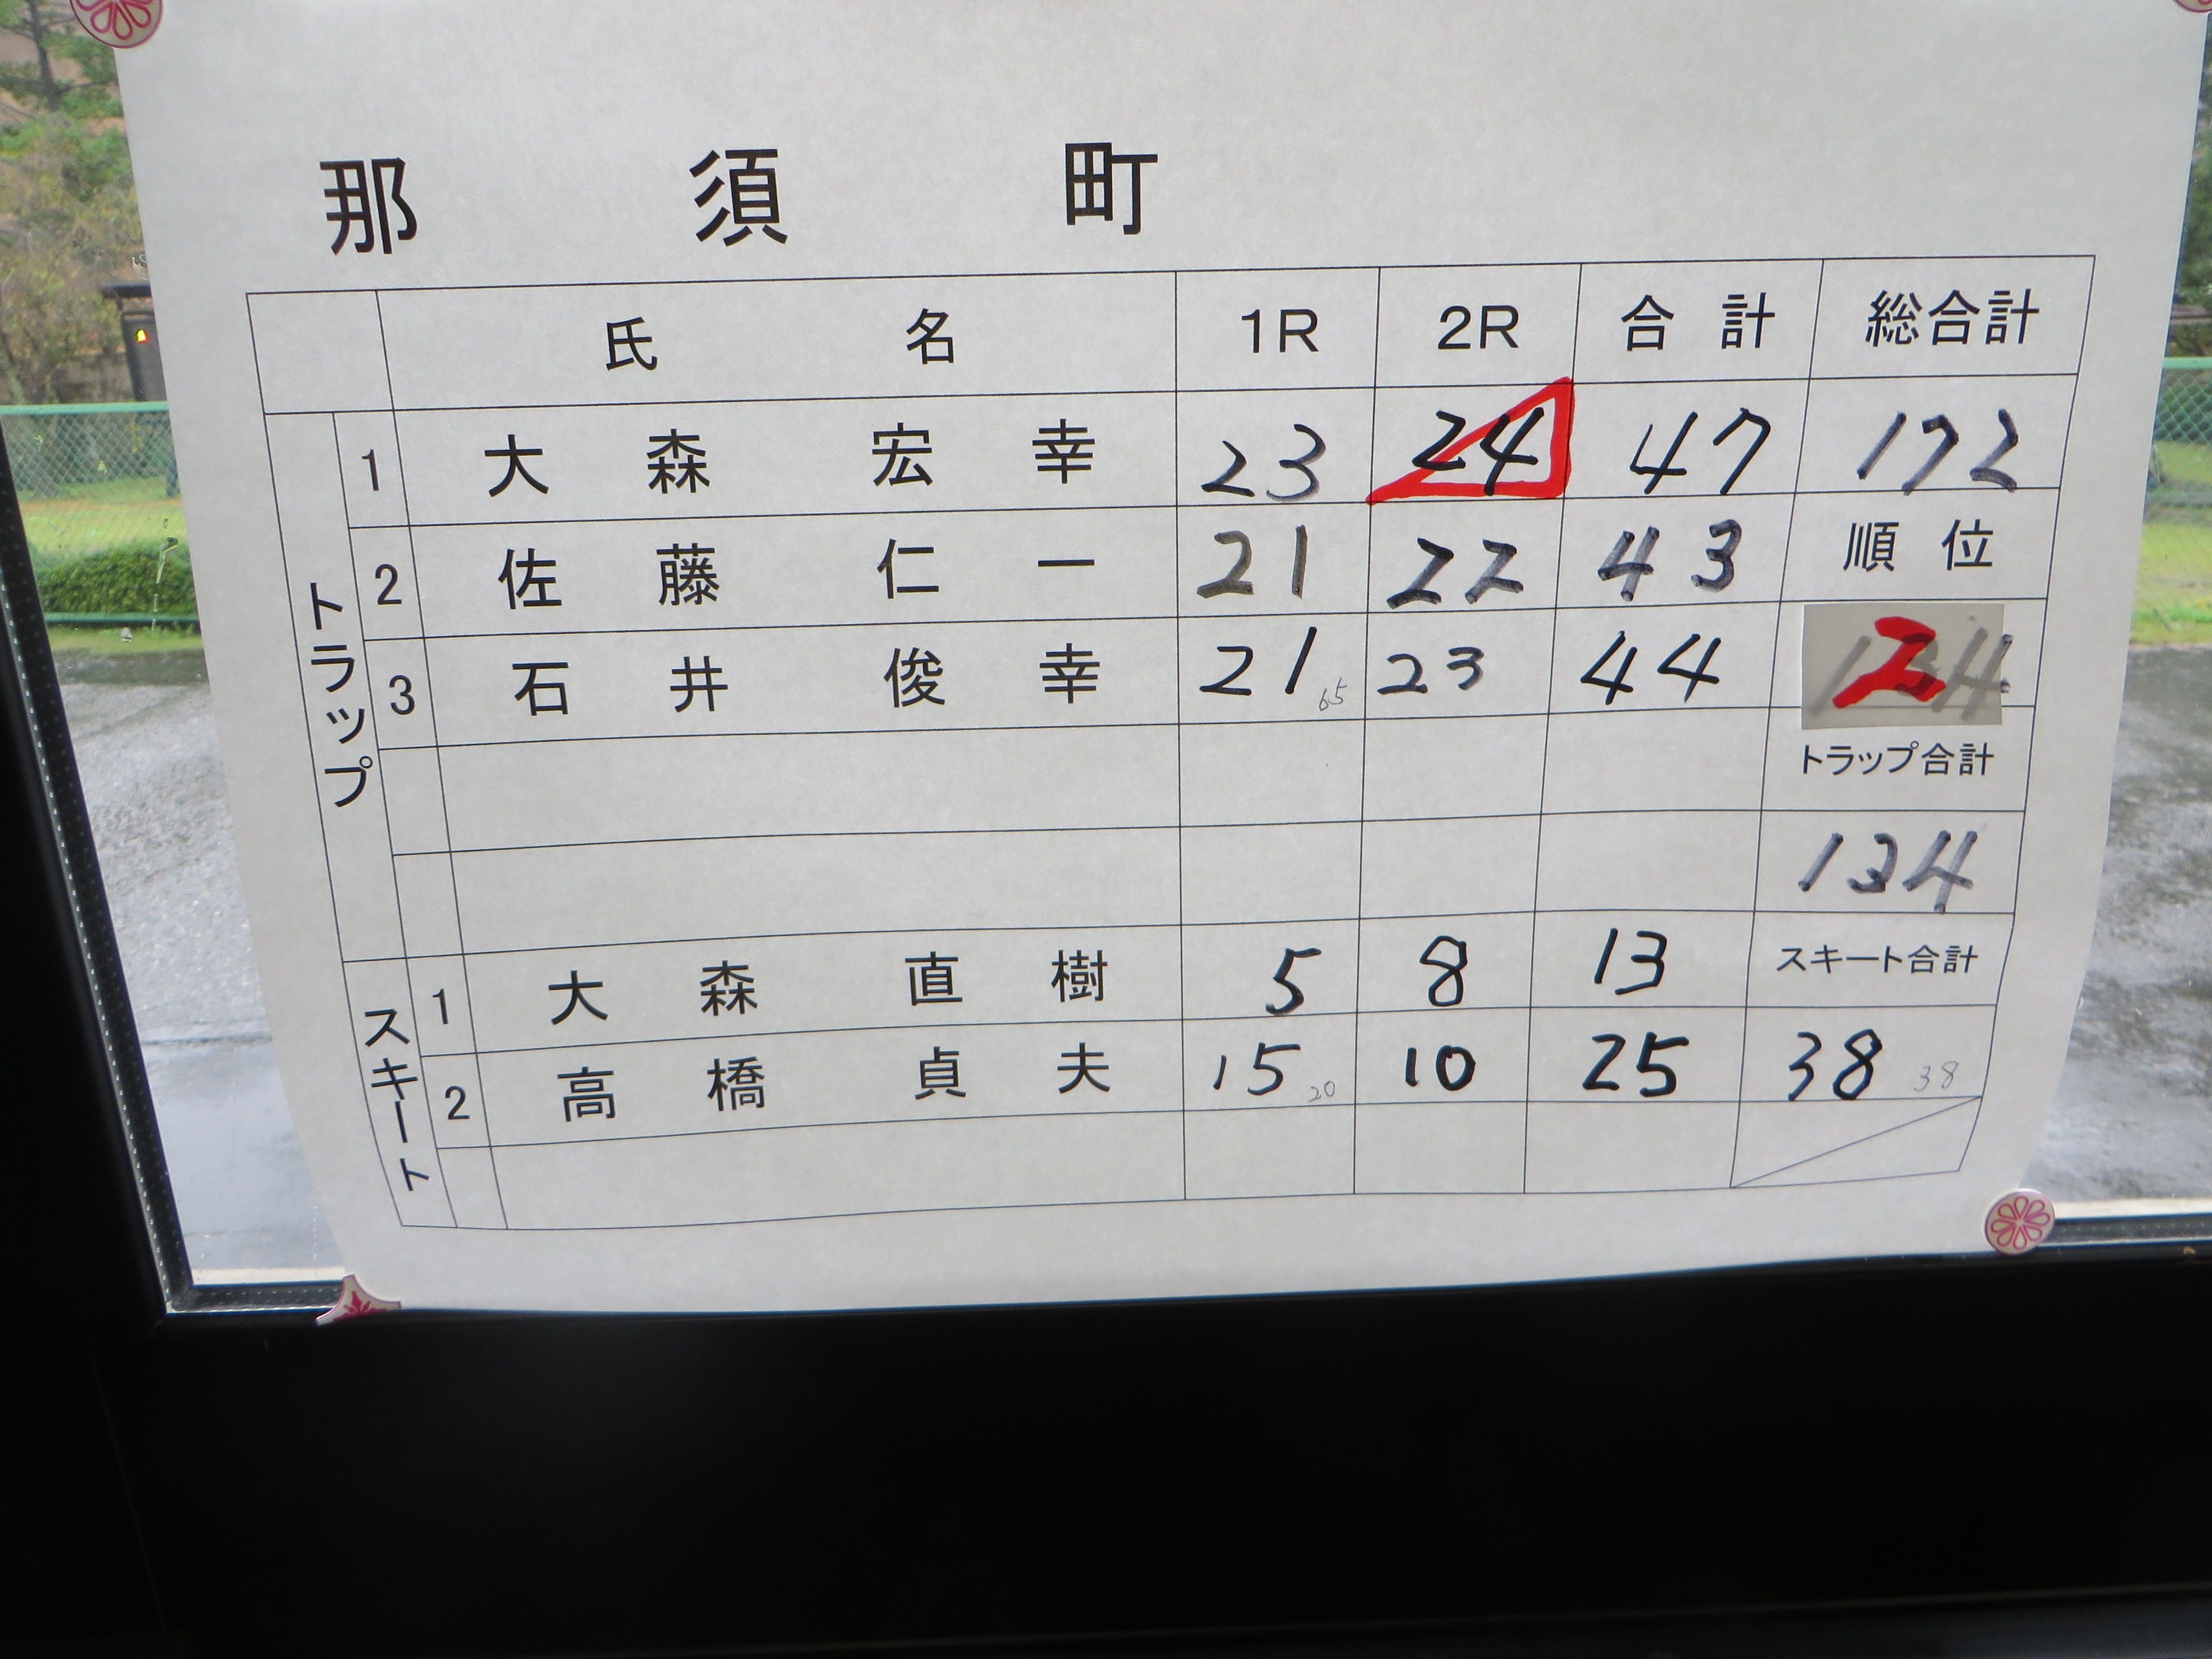 那須町
氏名 1R 2R 合計 総合計
トラップ
1 大森宏幸 23 24 47 172
2 佐藤仁一 21 22 43 順位
3 石井俊幸 21 65 23 44 2
トラップ合計
134
スキート
1 大森直樹 5 8 13 スキート合計
2 高橋貞夫 15 20 10 25 38 38